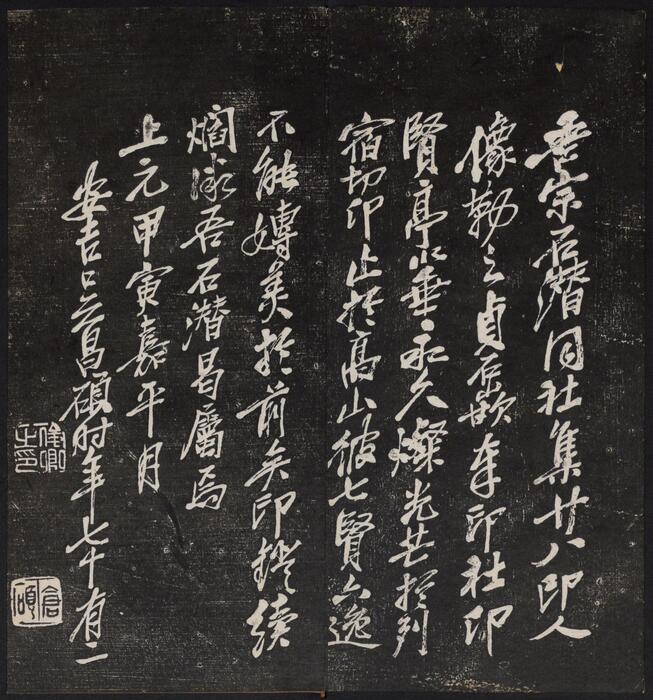 吾宗石潛同社集廿八印人
像勒之貞石嵌奉印社印
賢亭以垂永久燦光芒於列
宿切卬止於高山彼七賢六逸
不能嫥美於前矣印鐙續
焰微吾石潛曷屬焉
上元甲寅嘉平月
安吉吳昌碩時年七十有二
俊卿之印
倉碩